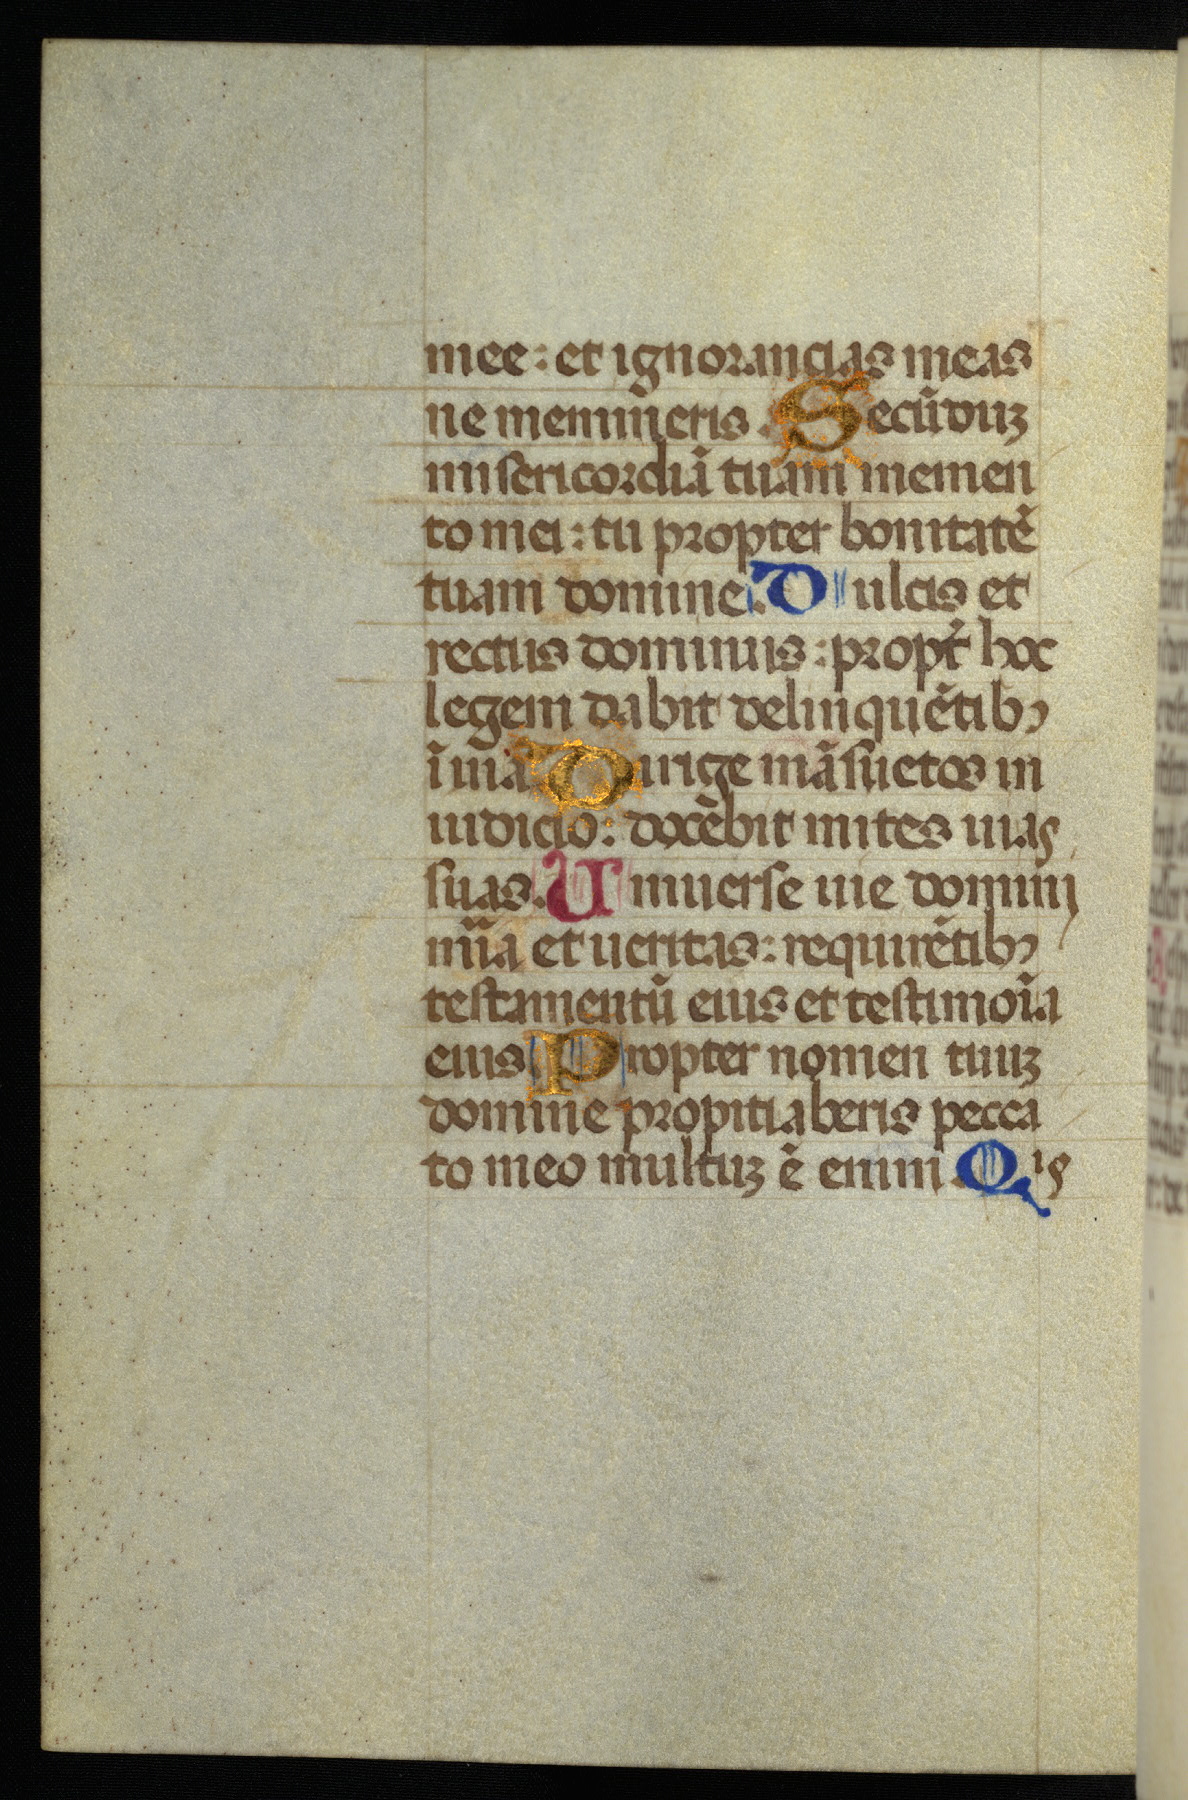 mee: et ignorancias meas
ne memiñeris. Secũduz
misericordiã tuam memen
to mei: tu propter bonitatẽ
tuam domine. Dulcis et
rectus dominus: propt̃ hoc
legem dabit delinquẽtibꝰ
ĩ uia Dirige mãsuetos in
iudicio: docẽbit mites uias
suas. Uniuerse uie domini
mĩa et ueritas: requirẽtibꝰ
testamentũ eius et testimoĩa
eius Propter nomen tuuz
domine propitiaberis pecca
to meo multuz ẽ enim. Qis